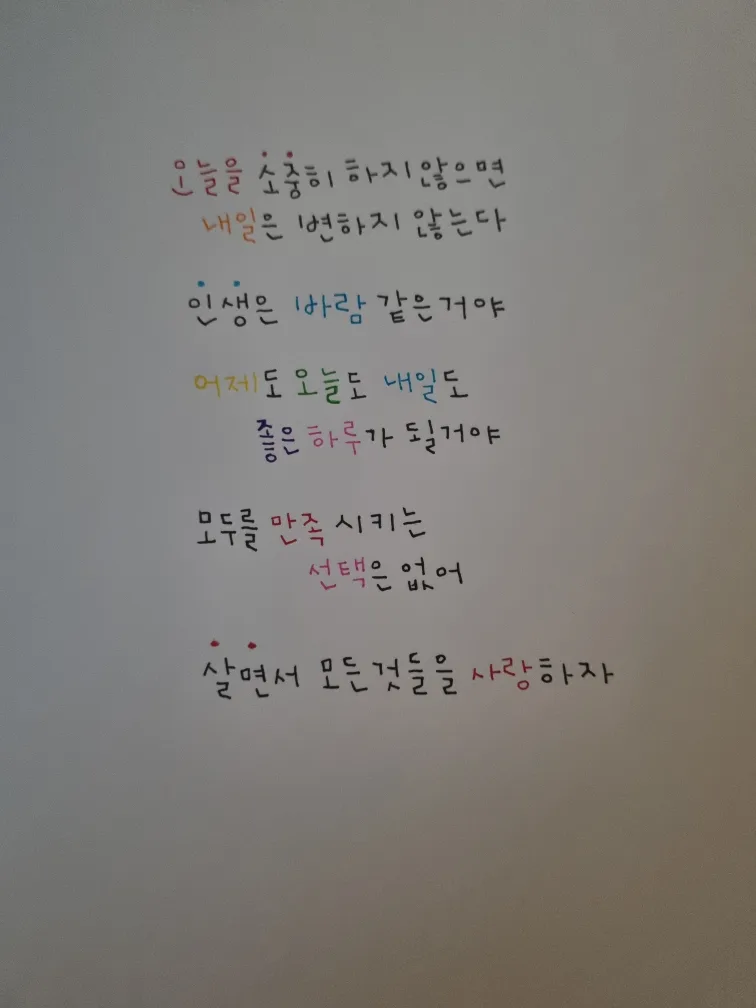 오늘을 소중히 하지않으면
내일은 변하지 않는다
인생은 바람 같은거야
어제도 오늘도 내일도
좋은 하루가 될거야
모두를 만족 시키는
선택은 없어
살면서 모든것들을 사랑하자